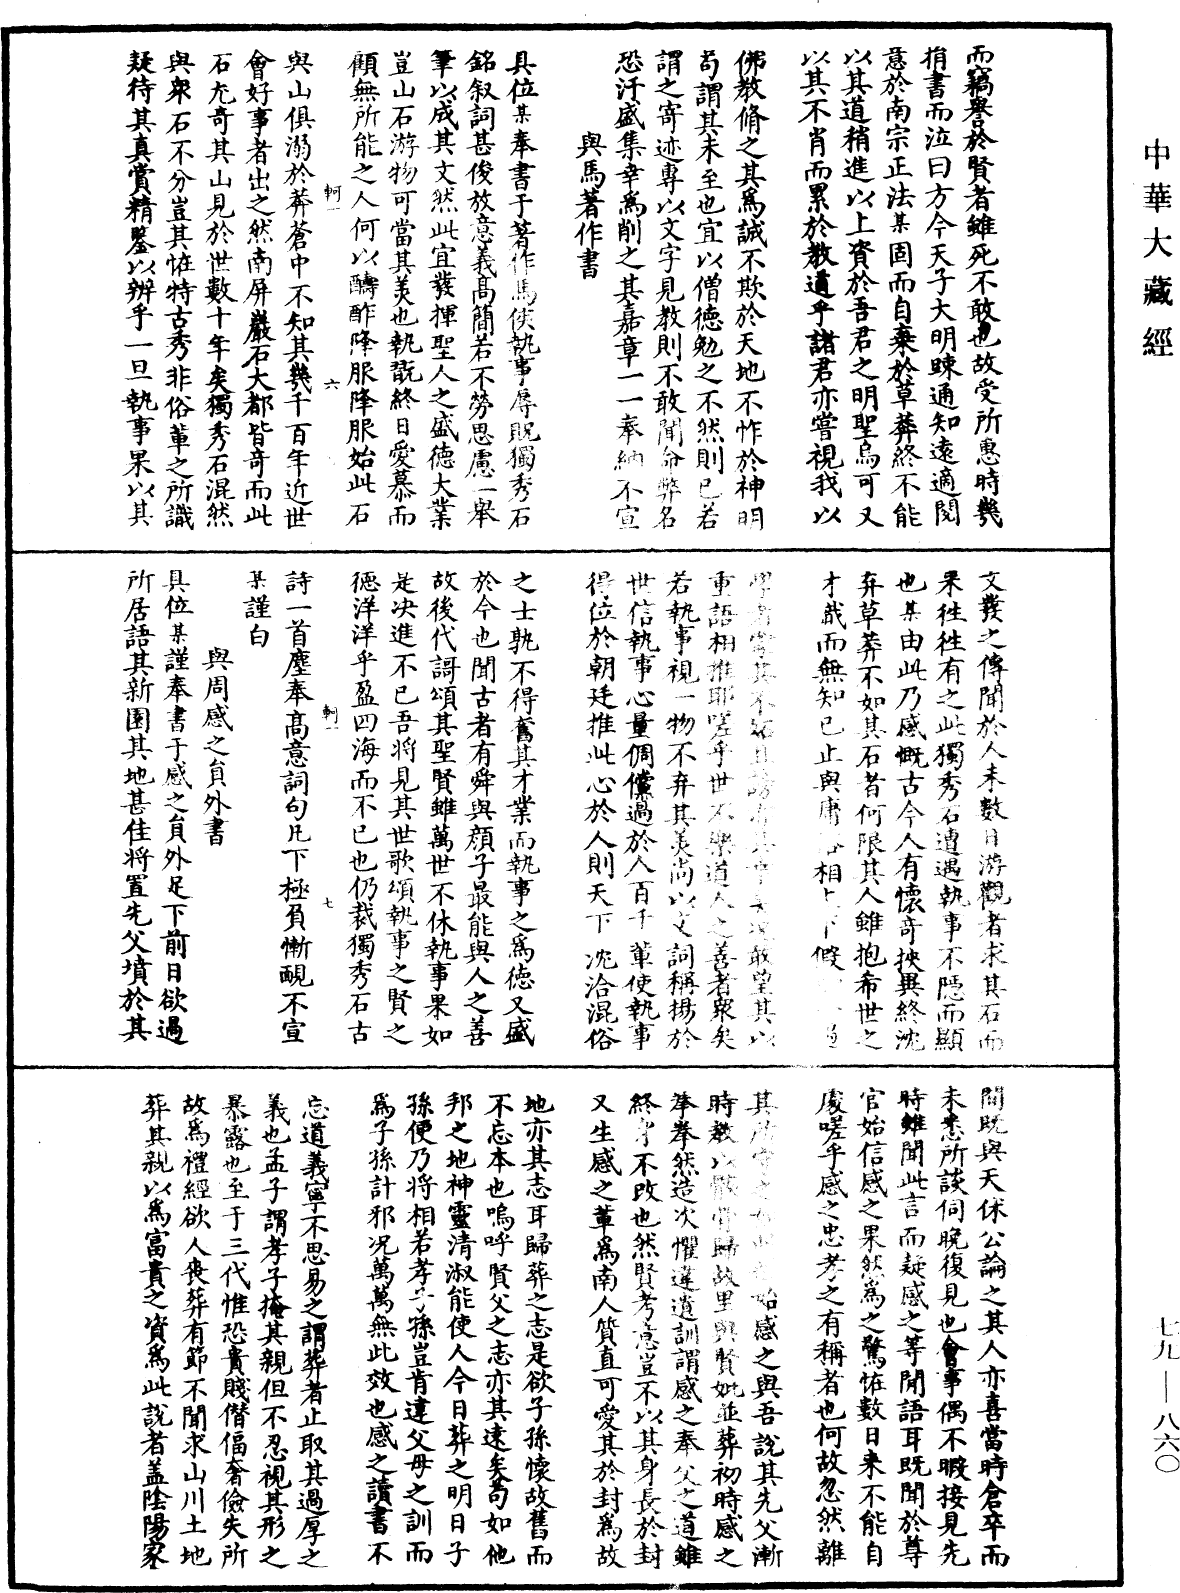 中華大藏經
而竊譽於賢者雖死不敢也故受所惠時幾
捐書而泣曰方今天子大明踈通知遠適閱
意於南宗正法某固而自棄於草莽終不能
以其道稍進以上資於吾君之明聖烏可又
以其不肖而累於教道乎諸君亦嘗視我以
佛教脩之其為誠不欺於天地不怍於神明
苟謂其未至也宜以僧德勉之不然則已若
謂之寄迹專以文字見教則不敢聞命弊名
恐汙盛集幸為削之其嘉章一一奉納不宣
與馬著作書
具位某奉書于著作馬侯執事辱貺獨秀石
銘叙詞甚俊放意義高簡若不勞思慮一舉
筆以成其文然此宜發揮聖人之盛德大業
豈山石游物可當其美也執翫終日愛慕而
顧無所能之人何以醻酢降服降服始此石
軻一
六
與山俱溺於莽蒼中不知其幾千百年近世
會好事者出之然南屏巖石大都皆奇而此
石尤奇其山見於世數十年矣獨秀石混然
與衆石不分豈其恠特古秀非俗輩之所識
疑待其真賞精鑒以辨乎一旦執事果以其
文發之傳聞於人未數日游觀者求其石而
果徃徃有之此獨秀石遭遇執事不隱而顯
也某由此乃感慨古今人有懷奇挾異終沈
弃草莽不如其石者何限其人雖抱希世之
才哉而無知已止與庸俗相上下假
重語相推耶嗟乎世不樂道人之善者衆矣
若執事視一物不弃其美尚以文詞稱揚於
世信執事心量倜儻過於人百千輩使執事
得位於朝廷推此心於人則天下沈洽混俗
之士孰不得奮其才業而執事之為德又盛
於今也聞古者有舜與顔子最能與人之善
故後代謌頌其聖賢雖萬世不休執事果如
是决進不已吾將見其世歌頌執事之賢之
德洋洋乎盈四海而不已也仍裁獨秀石古
軻一
七
詩一首塵奉高意詞句凡下極負慚靦不宣
某謹白
與周感之員外書
具位某謹奉書于感之員外足下前日欲過
所居語其新園其地甚佳將置先父墳於其
間既與天休公論之其人亦喜當時倉卒而
未悉所談伺晚復見也會事偶不暇接見先
時雖聞此言而疑感之等閒語耳既聞於尊
官始信感之果然為之驚恠數日來不能自
處嗟乎感之忠孝之有稱者也何故忽然離
其所守之如此始感之與吾說其先父漸
時教以骸骨歸故里與賢妣並葬初時感之
拳拳然造次懼違遺訓謂感之奉父之道雖
終身不改也然賢考意豈不以其身長於封
又生感之輩為南人質直可愛其於封為故
地亦其志耳歸葬之志是欲子孫懷故舊而
不忘本也嗚呼賢父之志亦其遠矣苟如他
邦之地神靈清淑能使人今日葬之明日子
孫便乃將相若孝子孫豈肯違父母之訓而
為子孫計邪況萬萬無此效也感之讀書不
忘道義寧不思易之謂葬者止取其過厚之
義也孟子謂孝子掩其親但不忍視其形之
暴露也至于三代惟恐貴賤僭偪奢儉失所
故為禮經欲人喪葬有節不聞求山川土地
葬其親以為富貴之資為此說者蓋陰陽家
七九—八六〇